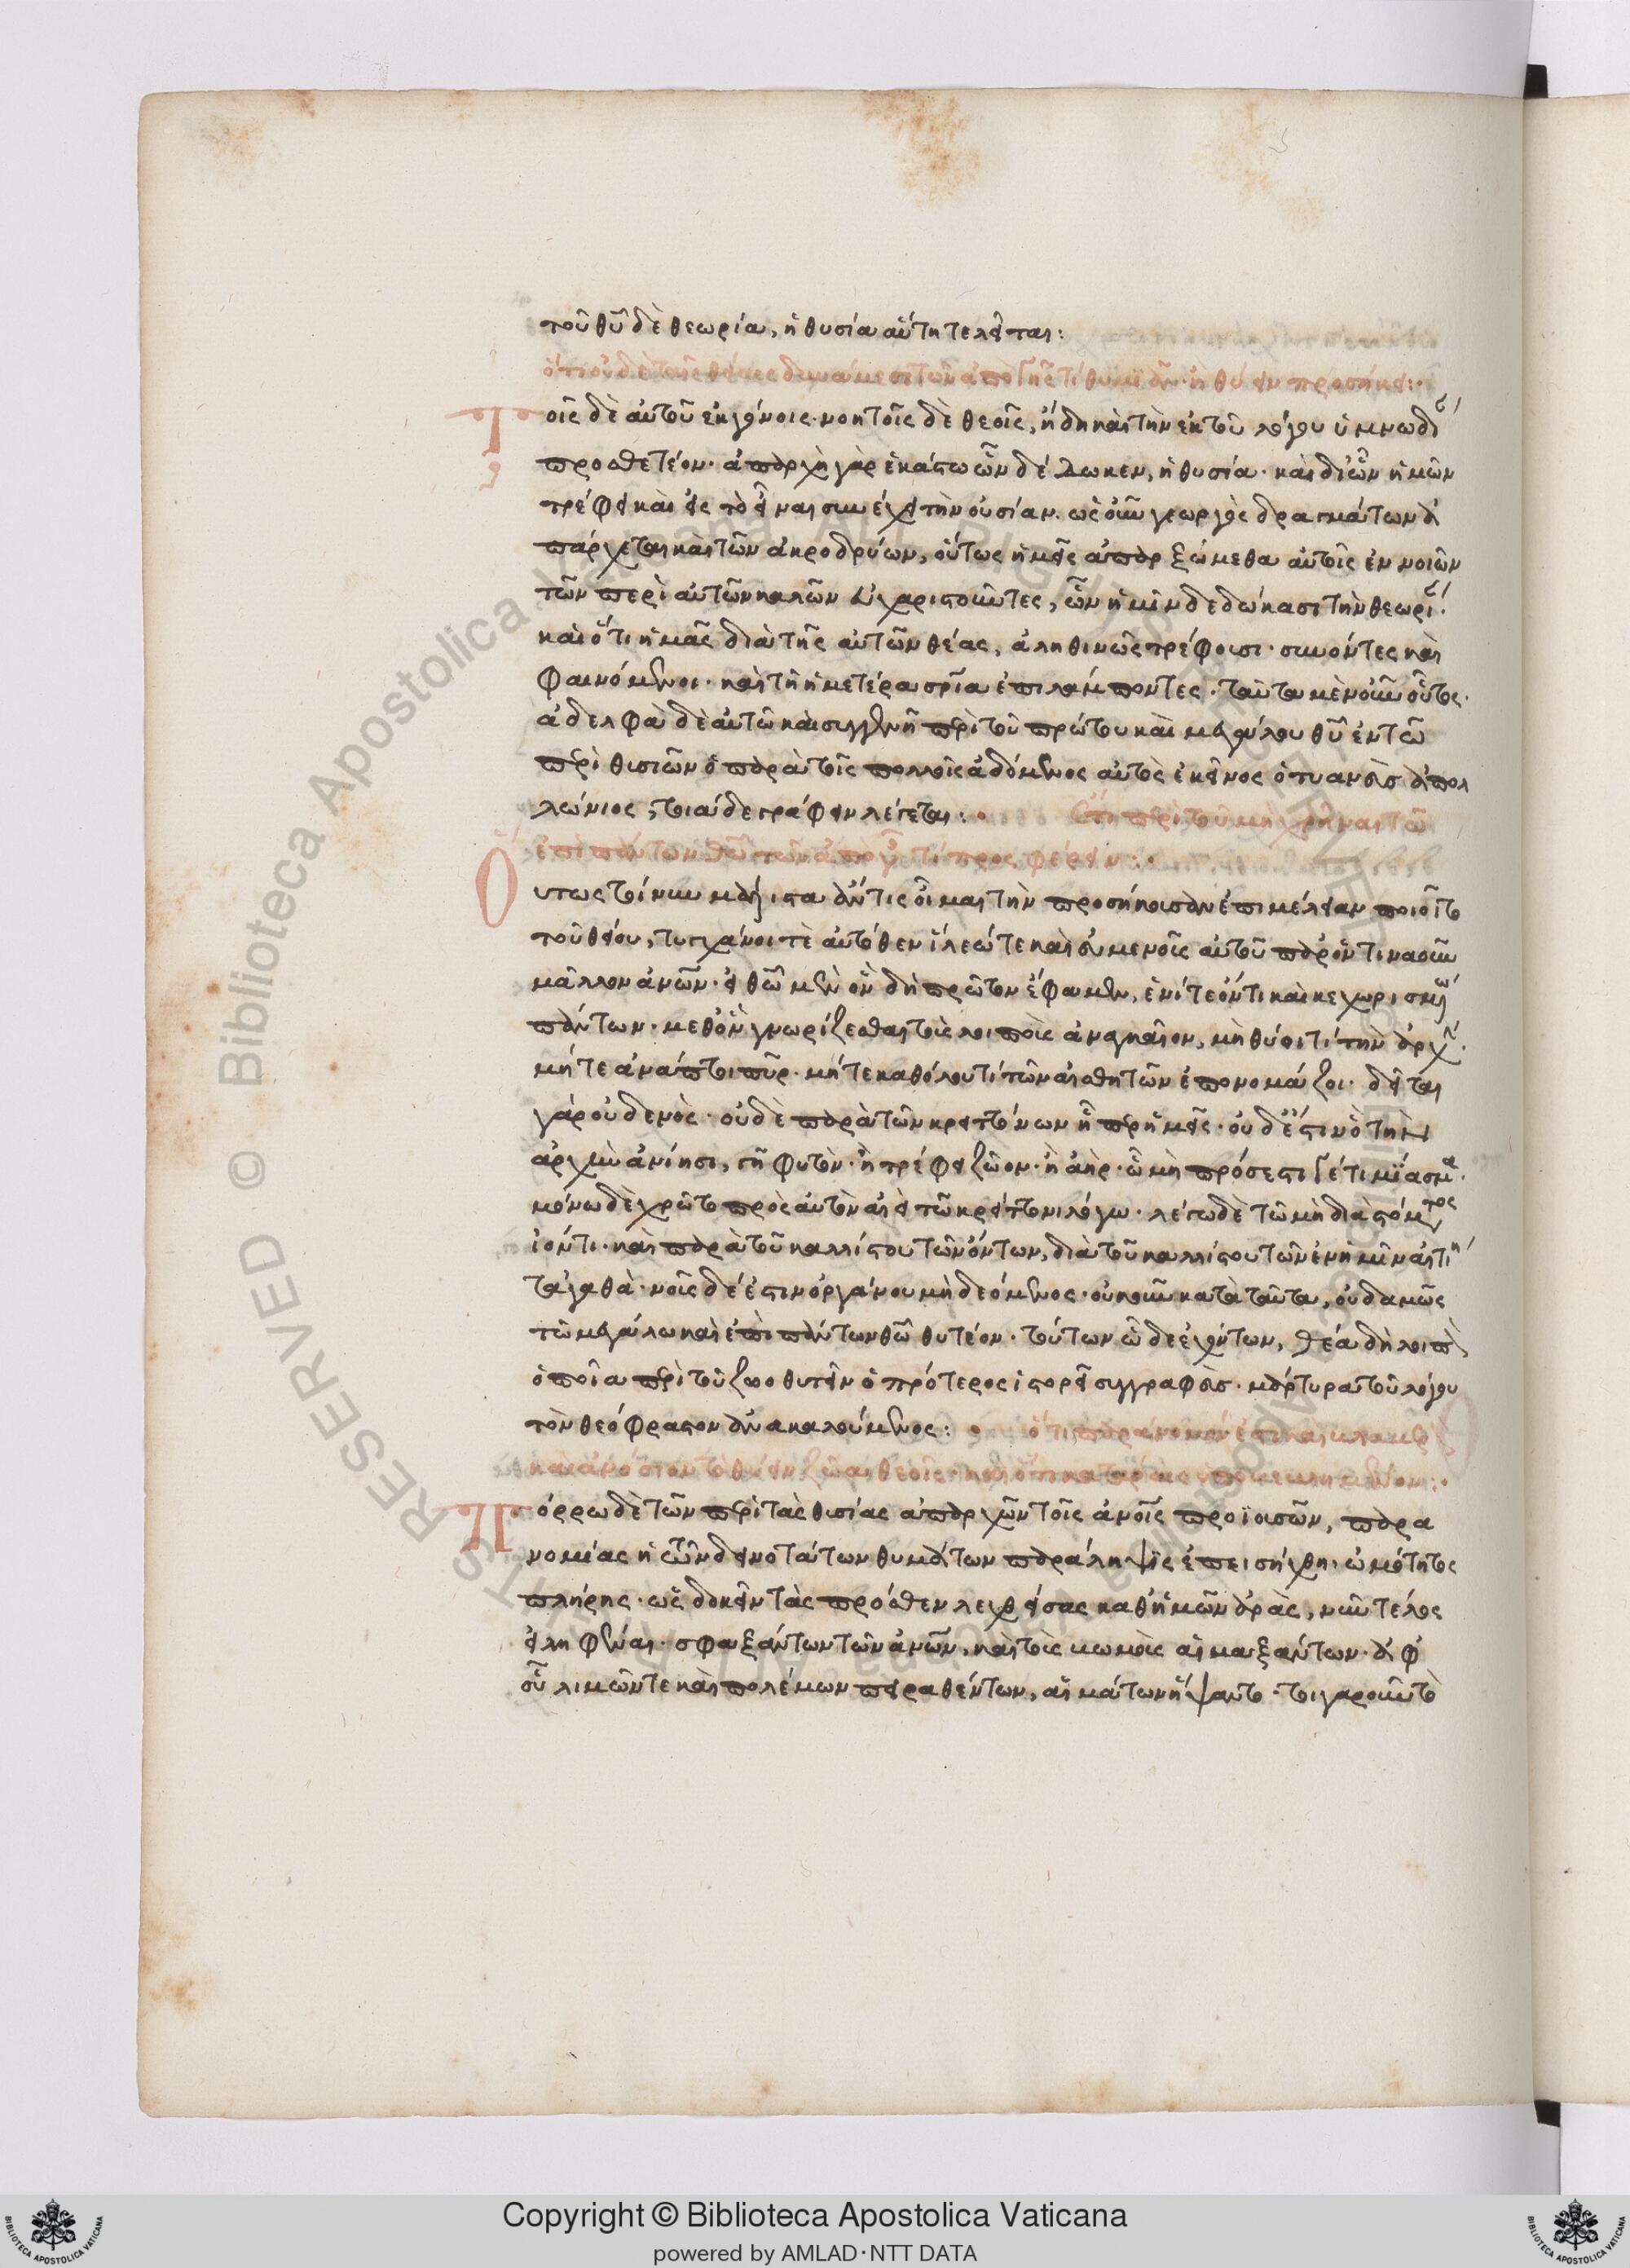 τοῦ θῦ δὲ θεωρία, ἡ θυσία αὕτη τελεῖται:
ὅτι οὐδὲ ταῖς θείαις δυνάμεσι τῶν ἀπὸ γῆς τί θυμιᾶν ἢ θύειν προσήκει:
Τοῖς δὲ αὐτοῦ ἐκγόνοις· νοητοῖς δὲ θεοῖς, ἤδη καὶ τὴν ἐκ τοῦ λόγου ὑμνωδί
προσθετέον· ἀπαρχὴ γὰρ ἑκάστω ὧν δέδωκεν, ἡ θυσία· καὶ δι ὧν ἡμῶν
τρέφει καὶ εἰς τὸ εἶναι συνέχει τὴν οὐσίαν. ὡς οὖν γεωργὸς δραγμάτων ἀ
πάρχεται καὶ τῶν ἀκροδρύων, οὕτως ἡμεῖς ἀπαρξώμεθα αὐτοῖς ἐννοιῶν
τῶν περὶ αὐτῶν καλῶν εὐχαριστοῦντες, ὧν ἡμῖν δεδώκασι τὴν θεωρί
καὶ ὅτι ἡμᾶς διὰ τῆς αὐτῶν θέας, ἀληθινῶς τρέφουσι· συνόντες καὶ
φαινόμενοι· καὶ τῆ ἡμετέρα σρία ἐπιλάμποντες· ταῦτα μὲν οὖν οὗτος·
ἀδελφὰ δὲ αὐτῶ καὶ συγγενῆ περὶ τοῦ πρώτου καὶ μεγάλου θῦ ἐν τῶ
περὶ θυσιῶν ὁ παρὰ τοῖς πολλοῖς ἀδόμενος αὐτὸς ἐκεῖνος ὁ τυανεὺς ἀπολ
λώνιος, τοιάδε γράφειν λέγεται: Ἔτι περὶ τοῦ μὴ χρῆναι τῶ
ἐπὶ πάντων θῶ τῶν ἀπὸ γῆς τί προσφέρειν:
Οὕτως τοίνυν μάλιστα ἄν τις οἶμαι τὴν προσήκουσαν ἐπιμέλειαν ποιοῖτο
τοῦ θείου, τυγχάνοι τὲ αὐτόθεν ἵλεώ τε καὶ εὐμενοῖς αὐτοῦ παρ ὅντινα οὖν
μᾶλλον ἀνῶν· εἰ θῶ μὲν ὃν δὴ πρῶτον ἔφαμεν, ἑνί τε ὄντι καὶ κεχωρισμ
πάντων· μεθ ὃν γνωρίζεσθαι τοὺς λοιποὺς ἀναγκαῖον, μὴ θύοι τί τὴν ἀρχ
μήτε ἀνάπτοι πῦρ· μήτε καθόλου τί τῶν αἰσθητῶν ἐπονομάζοι· δεῖται
γὰρ οὐδενὸς· οὐδὲ παρὰ τῶν κρειττόνων ἢ περ ἡμεῖς· οὐδ ἔστιν ὃ τὴν
ἀρχὴν ἀνίησι, γῆ φυτὸν· ἢ τρέφει ζῶον· ἢ ἀὴρ· ὧ μὴ πρόσεστί γέ τι μίασμα
μόνω δὲ χρῶτο πρὸς αὐτὸν αἰεὶ τῶ κρείττονι λόγω· λέγω δὲ τῶ μὴ διὰ στόματος
ἰόντι· καὶ παρὰ τοῦ καλλίστου τῶν ὄντων, διὰ τοῦ καλλίστου τῶν ἐν ἡμῖν αἰτ
τἀγαθὰ· νοῦς δέ ἐστιν ὀργάνου μὴ δεόμενος· οὐκοῦν κατὰ ταῦτα, οὐδαμῶς
τῶ μεγάλω καὶ ἐπὶ πάντων θῶ θυτέον· τούτων ὧδε ἐχόντων, θέα δὴ λοιπὸν
ὁποῖα περὶ τοῦ ζωοθυτεῖν ὁ πρότερος ἱστορεῖ συγγραφεὺς· μάρτυρα τοῦ λόγου
τὸν θεόφραστον ἀνακαλούμενος: ὅτι παράνομόν ἐστι καὶ
καὶ ἀνόσιον τὸ θύειν ζῶα θεοῖς·
Πόρρω δὲ τῶν περὶ τὰς θυσίας ἀπαρχῶν τοῖς ἀνοῖς προϊουσῶν, παρα
νομίας ἡ τῶν δεινοτάτων θυμάτων παράληψις ἐπεισήχθη· ὠμότητος
πλήρης· ὡς δοκεῖν τὰς πρόσθεν λεχθείσας καθ ἡμῶν ἀρὰς, νῦν τέλος
εἰληφέναι· σφαξάντων τῶν ἀνῶν, καὶ τοὺς βωμοὺς αἱμαξάντων· ἀφ
οὗ λιμῶν τε καὶ πολέμων πειραθέντων, αἱμάτων ἥψαντο· τοιγαροῦν τὸ
Copyright © Biblioteca Apostolica Vaticana
powered by AMLAD·NTT DATA